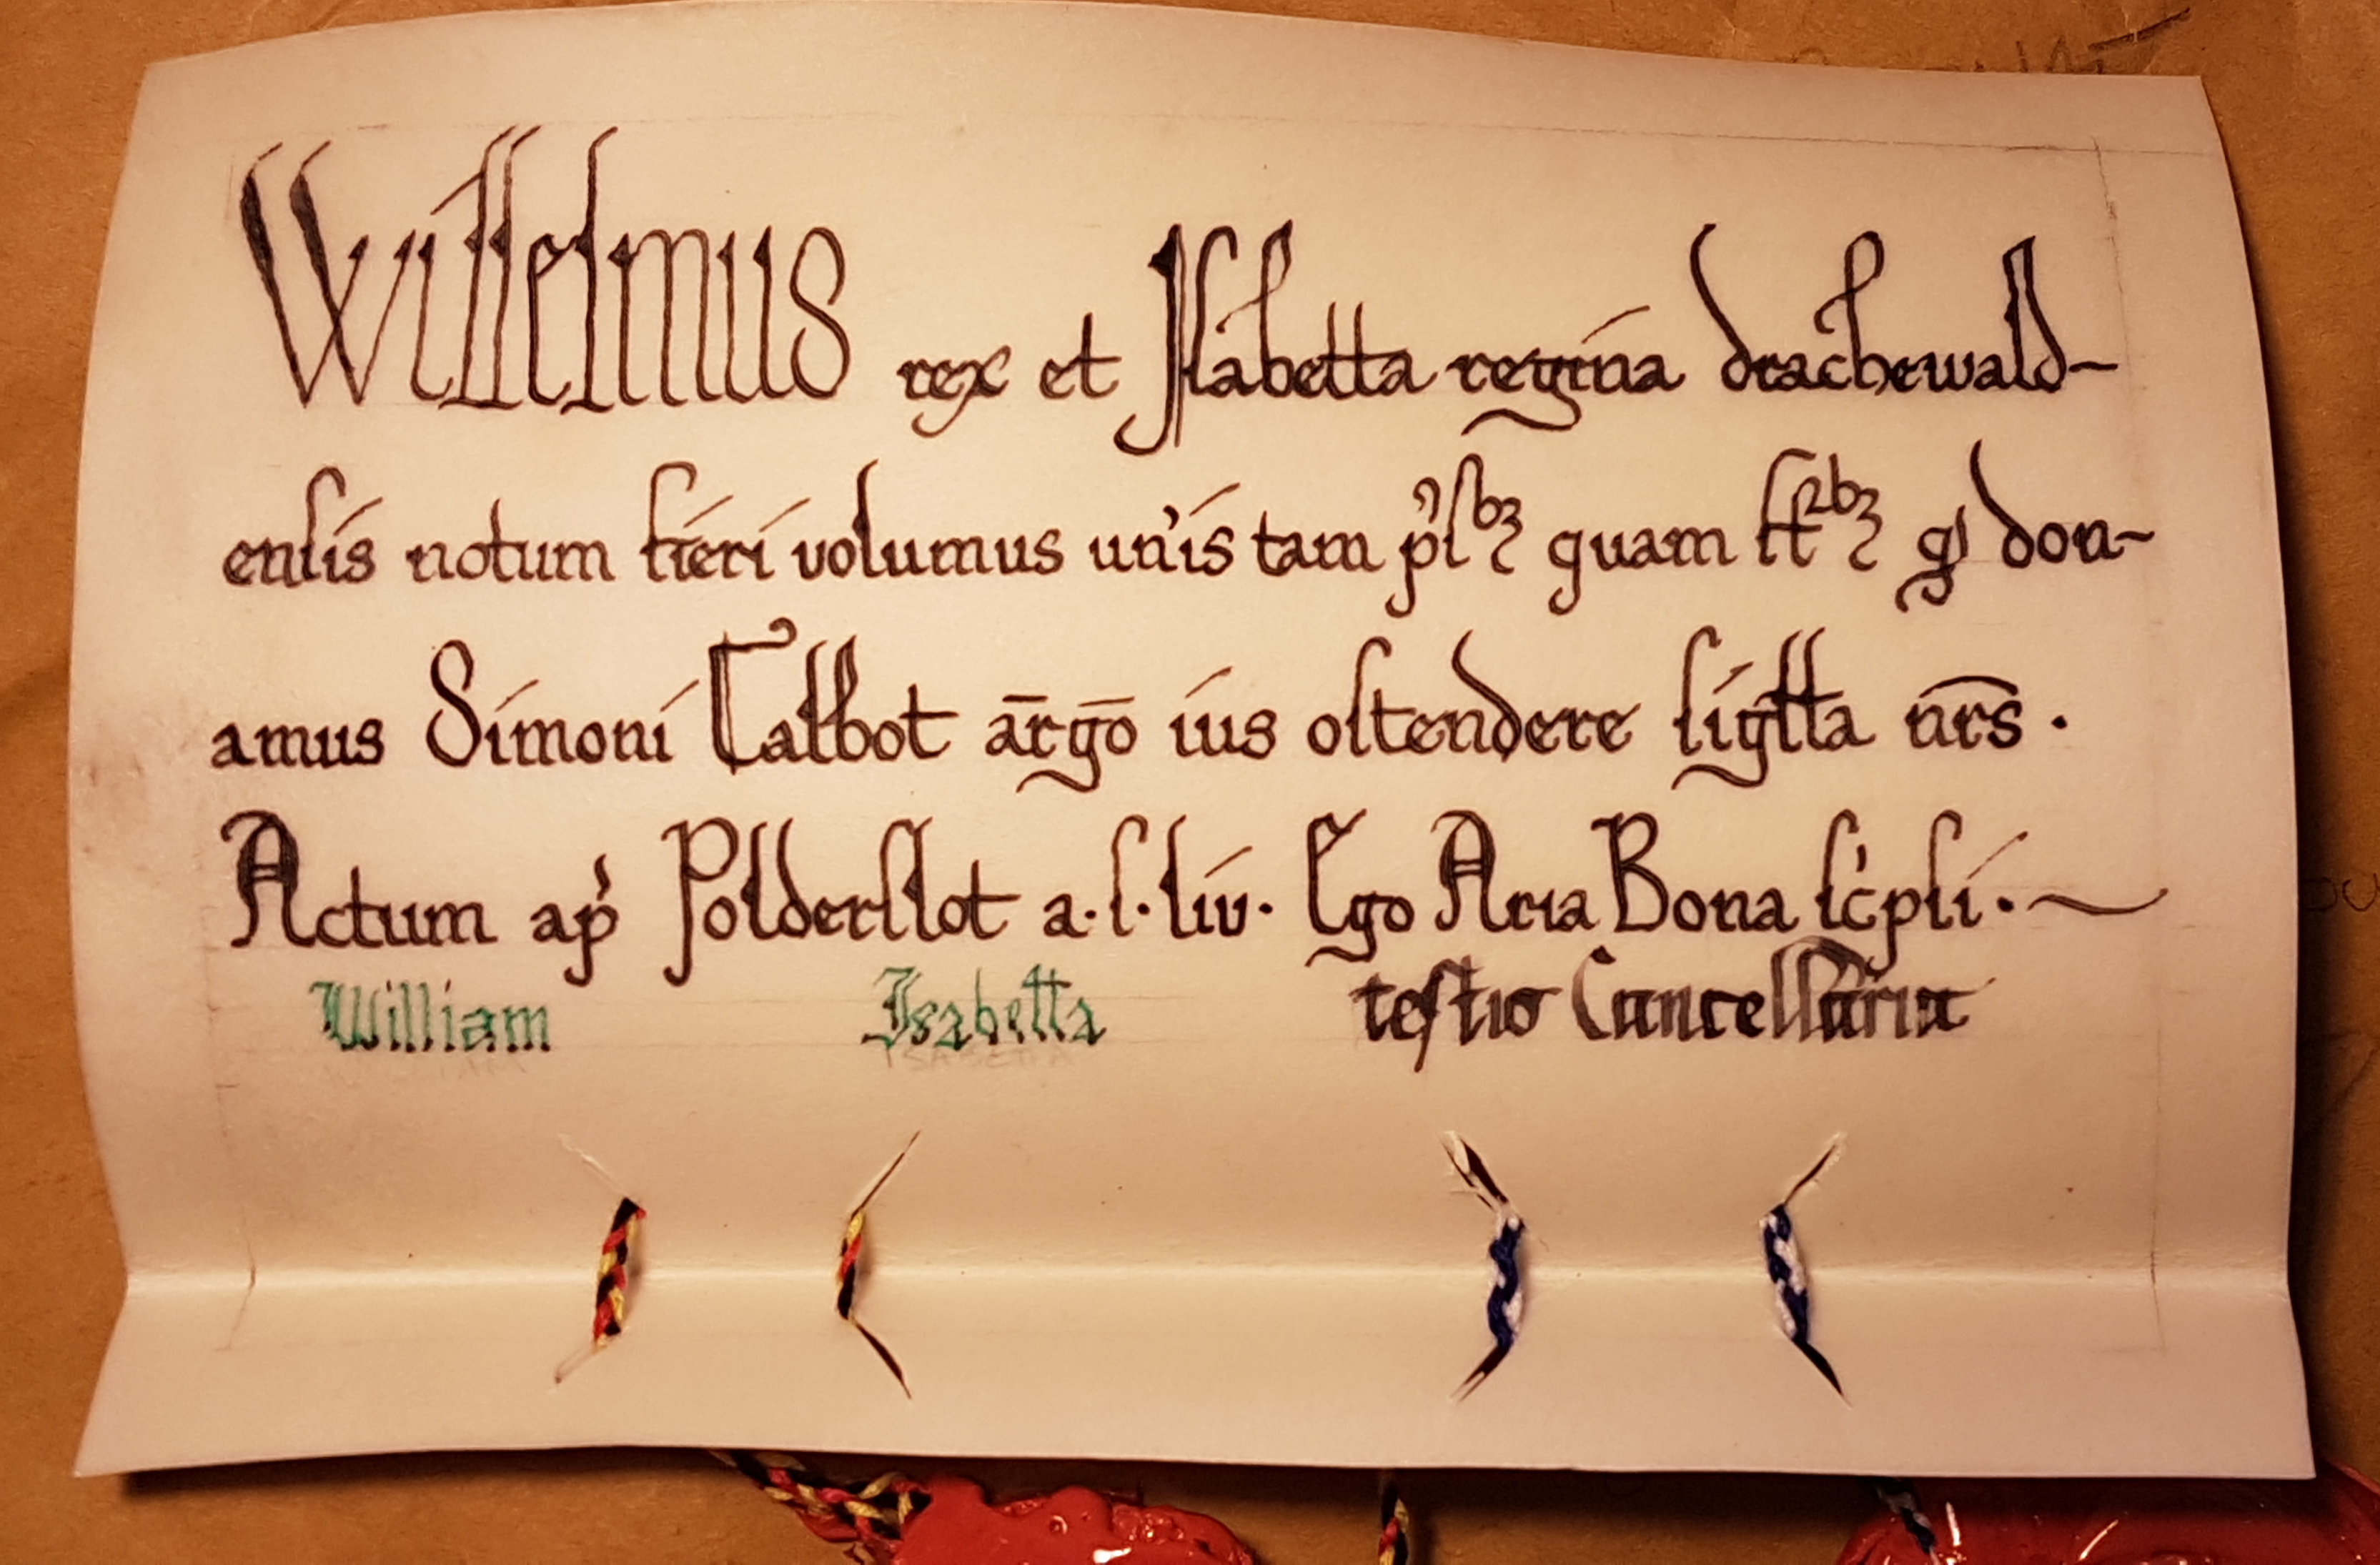 Willelmus rex et Isabetta regina drachewald-
ensis notum fieri volumus un'is tam p'sbꝫ quam ft2bꝫ qd don-
amus Simoni Talbot ārgō ius ostendere sigilla nr̄s.
Actum ap' Polderslot a.s.liv. Ego Aria Bona sc'psi.
William Isabetta testis Cancellaria
ISABETTA